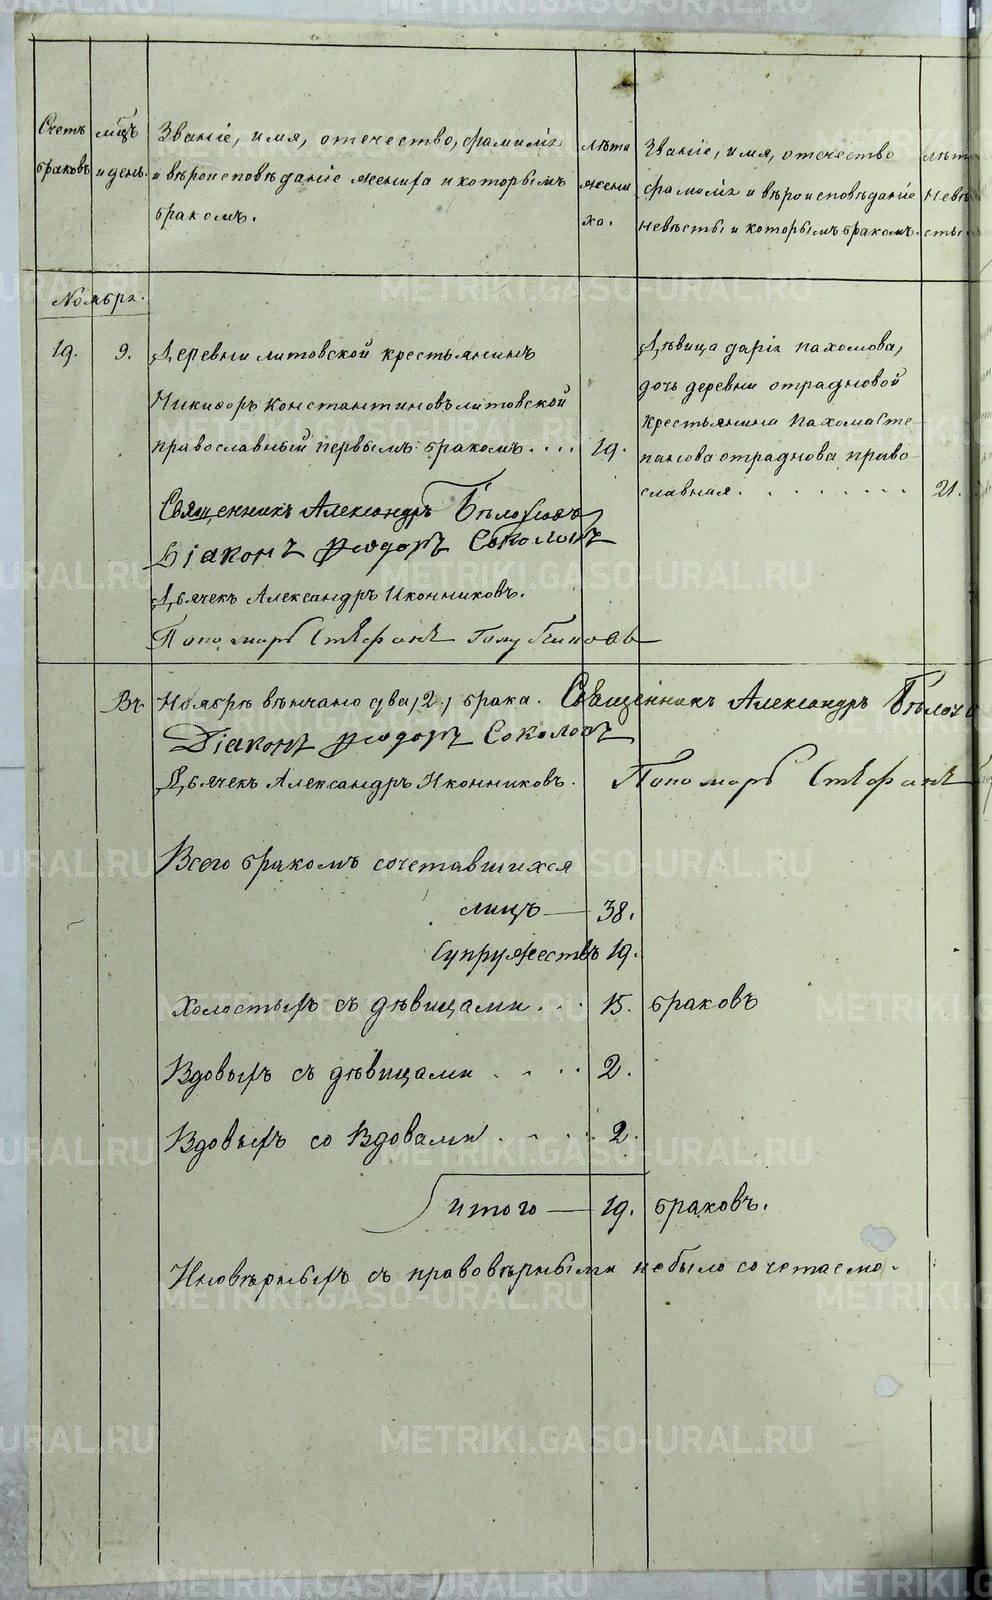 Счетъ браковъ
мѣцъ и день.
Званіе, имя, отечество, фамилія
и вѣроисповѣданіе жениха и которымъ
бракомъ.
лѣта
жени
ха.
Званіе, имя, отечество
фамилія и вѣроисповѣданіе
невѣсты и которымъ бракомъ.
лѣта
невѣ
сты
Ноября.
19. 9. Деревни литовской крестьянинъ
Никифоръ Константиновъ литовской
православный первымъ бракомъ.... 19.
Дѣвица дарія пахомова,
дочь деревни отрадновой
крестьянина пахома сте-
панова отраднова право-
славная. 21.
Священникъ Александръ
Діаконъ Ѳеодоръ Соколовъ
Дьячекъ Александръ Иконниковъ.
Пономарь Стефанъ
Въ Ноябрѣ вѣнчано два, 2, брака. Священникъ Александръ
Діаконъ Ѳеодоръ Соколовъ
Дьячекъ Александръ Иконниковъ. Пономарь Стефанъ
Всего бракомъ сочетавшихся
лицъ — 38.
Супружествъ 19.
Холостыхъ съ дѣвицами... 15. браковъ
Вдовыхъ съ дѣвицами.... 2.
Вдовыхъ со вдовами..... 2.
итого — 19. браковъ.
Иновѣрныхъ съ правовѣрными небыло сочетаемо.
METRIKI.GASO-URAL.RU